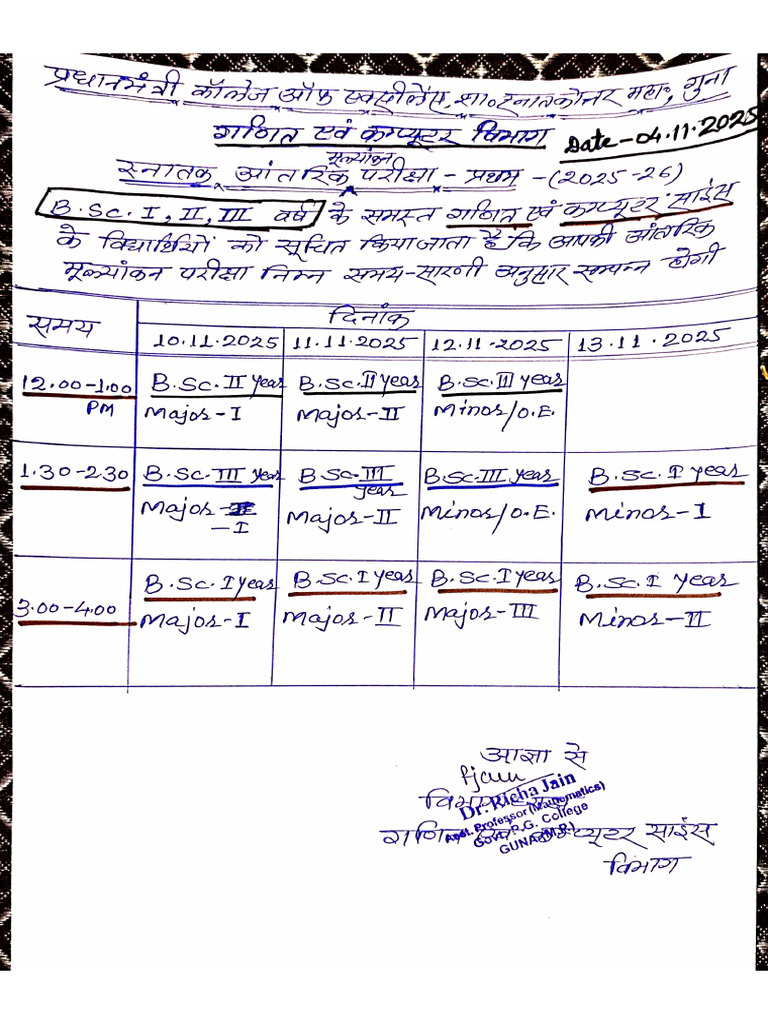 प्रधानमंत्री कॉलेज ऑफ एक्सीलेंस, शा० स्नातकोत्तर महा०, गुना
गणित एवं कम्प्यूटर विभाग
Date-04.11.2025
मूल्यांकन
स्नातक आंतरिक परीक्षा - प्रथम -(2025-26)
B.Sc. I, II, III वर्ष के समस्त गणित एवं कम्प्यूटर साइंस
के विद्यार्थियों को सूचित किया जाता है कि आपकी आंतरिक
मूल्यांकन परीक्षा निम्न समय-सारणी अनुसार सम्पन्न होगी
समय दिनांक
10.11.2025 11.11.2025 12.11.2025 13.11.2025
12.00-1.00 B.Sc. II year B.Sc. II year B.Sc. III year
PM Major-I Major-II Minor/O.E.
1.30-2.30 B.Sc. III year B.Sc. III year B.Sc. III year B.Sc. I year
Major-I Major-II Minor/O.E. Minor-I
3.00-4.00 B.Sc. I year B.Sc. I year B.Sc. I year B.Sc. I year
Major-I Major-II Major-III Minor-II
आज्ञा से
Dr. Richa Jain
Asst. Professor (Mathematics)
Govt. P.G. College
GUNA (M.P.)
गणित कम्प्यूटर साइंस
विभाग